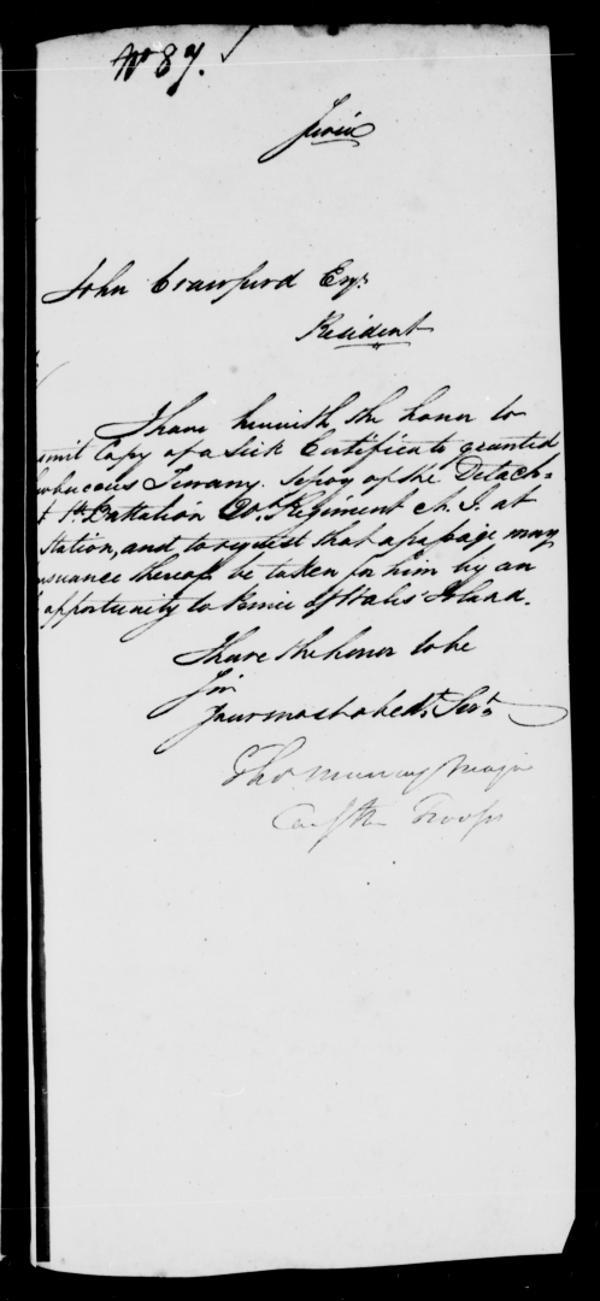 No 87.
John Crawfurd Esqr.
Resident
I have herewith the honor to
mit Copy of a Sick Certificate granted
Tewarry. Sepoy of the Detach=
t 1st. Battalion Regiment N. I. at
Station, and to request that a passage may
suance thereof be taken for him by an
opportunity to Prince of Wales Island.
I have the honor to be
Sir
Your most obedt. Servt.
Thos Murray Major
Troops